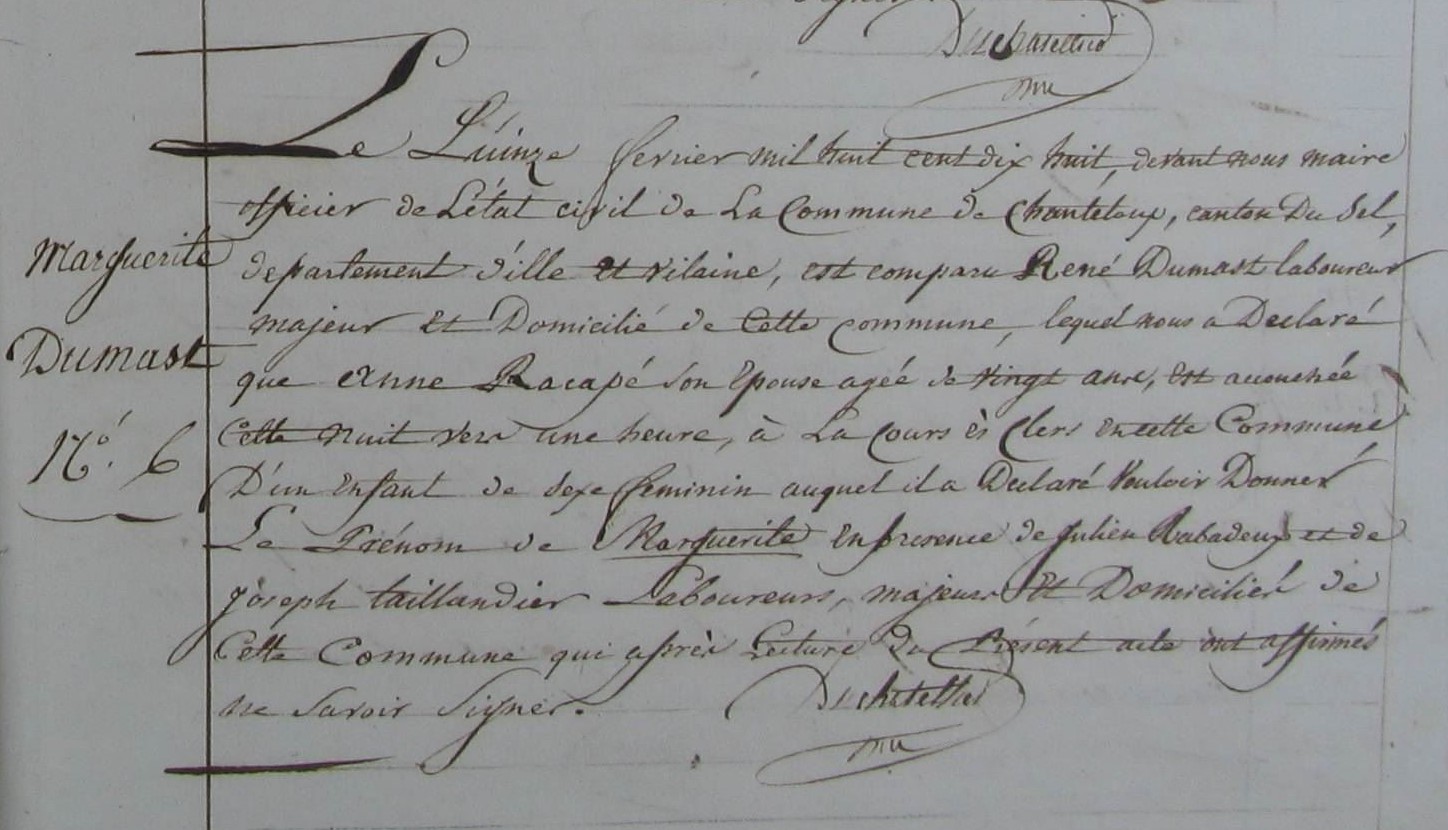 Duchatellier
Le Quinze fevrier mil huit cent dix huit, devant nous maire
officier de L'état civil de La Commune de Chanteloux, canton Du Sel,
Marguerite
departement d'ille et vilaine, est comparu René Dumast laboureur
majeur et Domicilié de Cette commune, lequel nous a Declaré
Dumast
que Anne Racapé son Epouse ageé de vingt ans, est accouchée
Cette nuit vers une heure, à La Cours ès Clers en cette Commune
No. 6
D'un Enfant de sexe feminin auquel il a Declaré Vouloir Donner
Le Prénom de Marguerite En presence de Julien Rabadeux et de
joseph taillandier Laboureurs, majeurs Et Domiciliés de
Cette Commune qui après Lecture du Présent acte ont affirmés
ne Savoir Signer.
Duchatellier